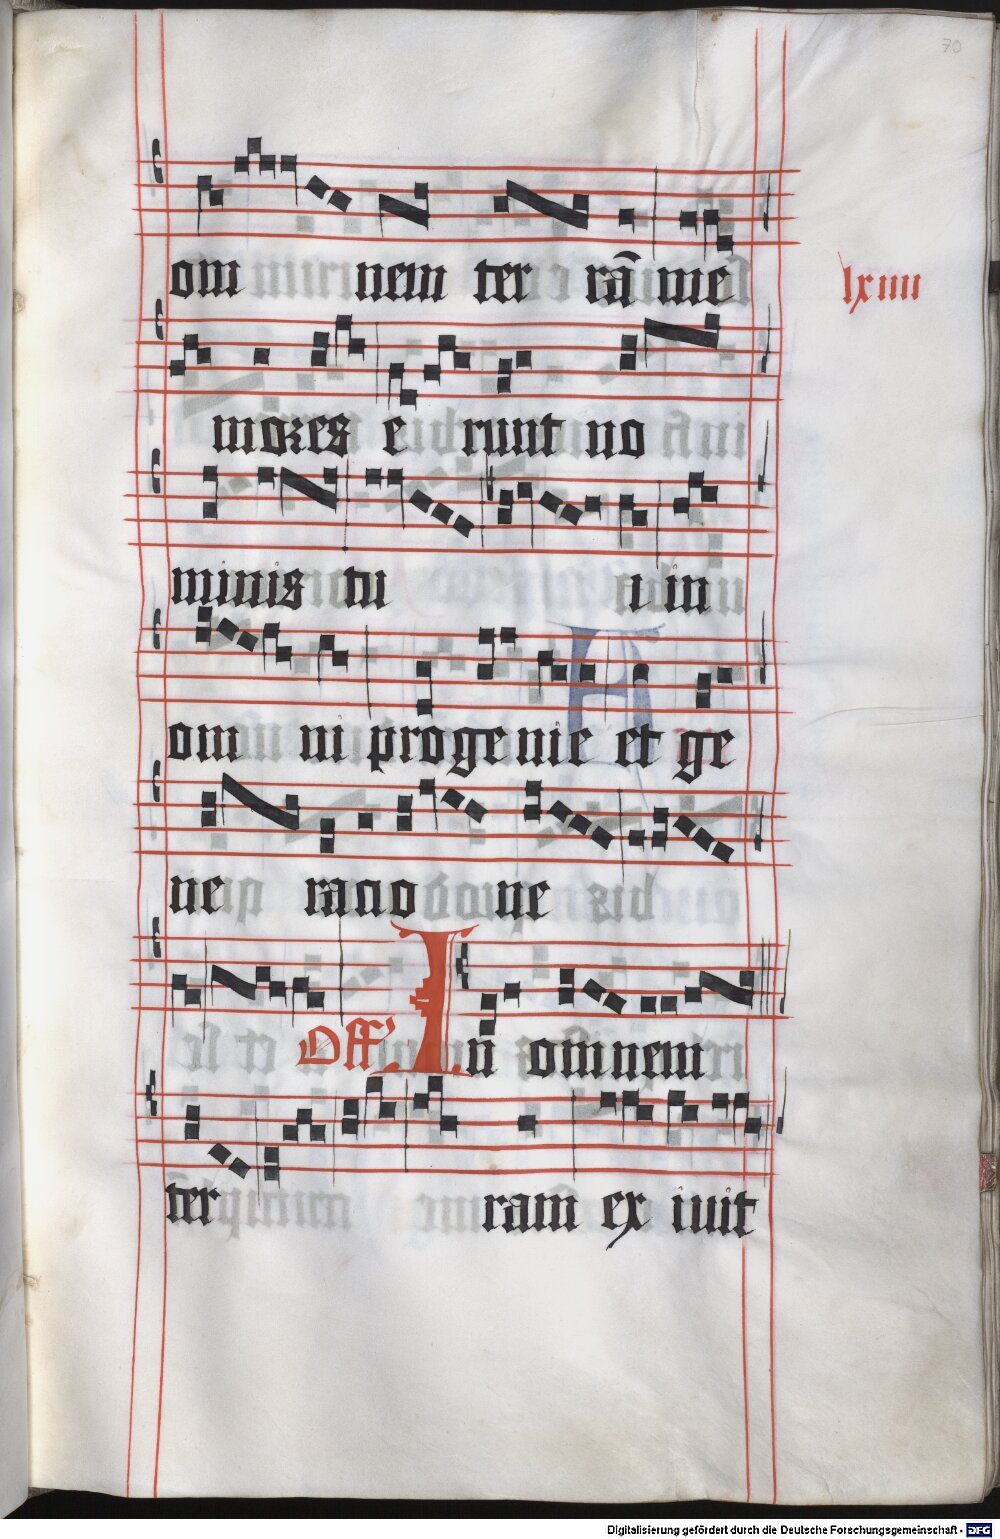 70
om nem ter rā me
lxiiii
mores e runt no
minis tu i in
om ni progenie et ge
ne racio ne
Off' In omnem
ter ram ex iuit
Digitalisierung gefördert durch die Deutsche Forschungsgemeinschaft - DFG